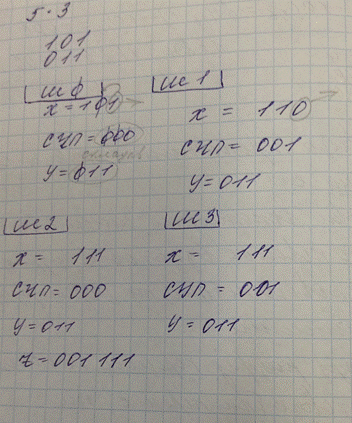 5·3
101
011
Ш 0
x = 101
СЧП = 000
y = 011
Ш 1
x = 110
СЧП = 001
y = 011
Ш2
x = 111
СЧП = 000
y = 011
z = 001 111
Ш3
x = 111
СЧП = 001
y = 011